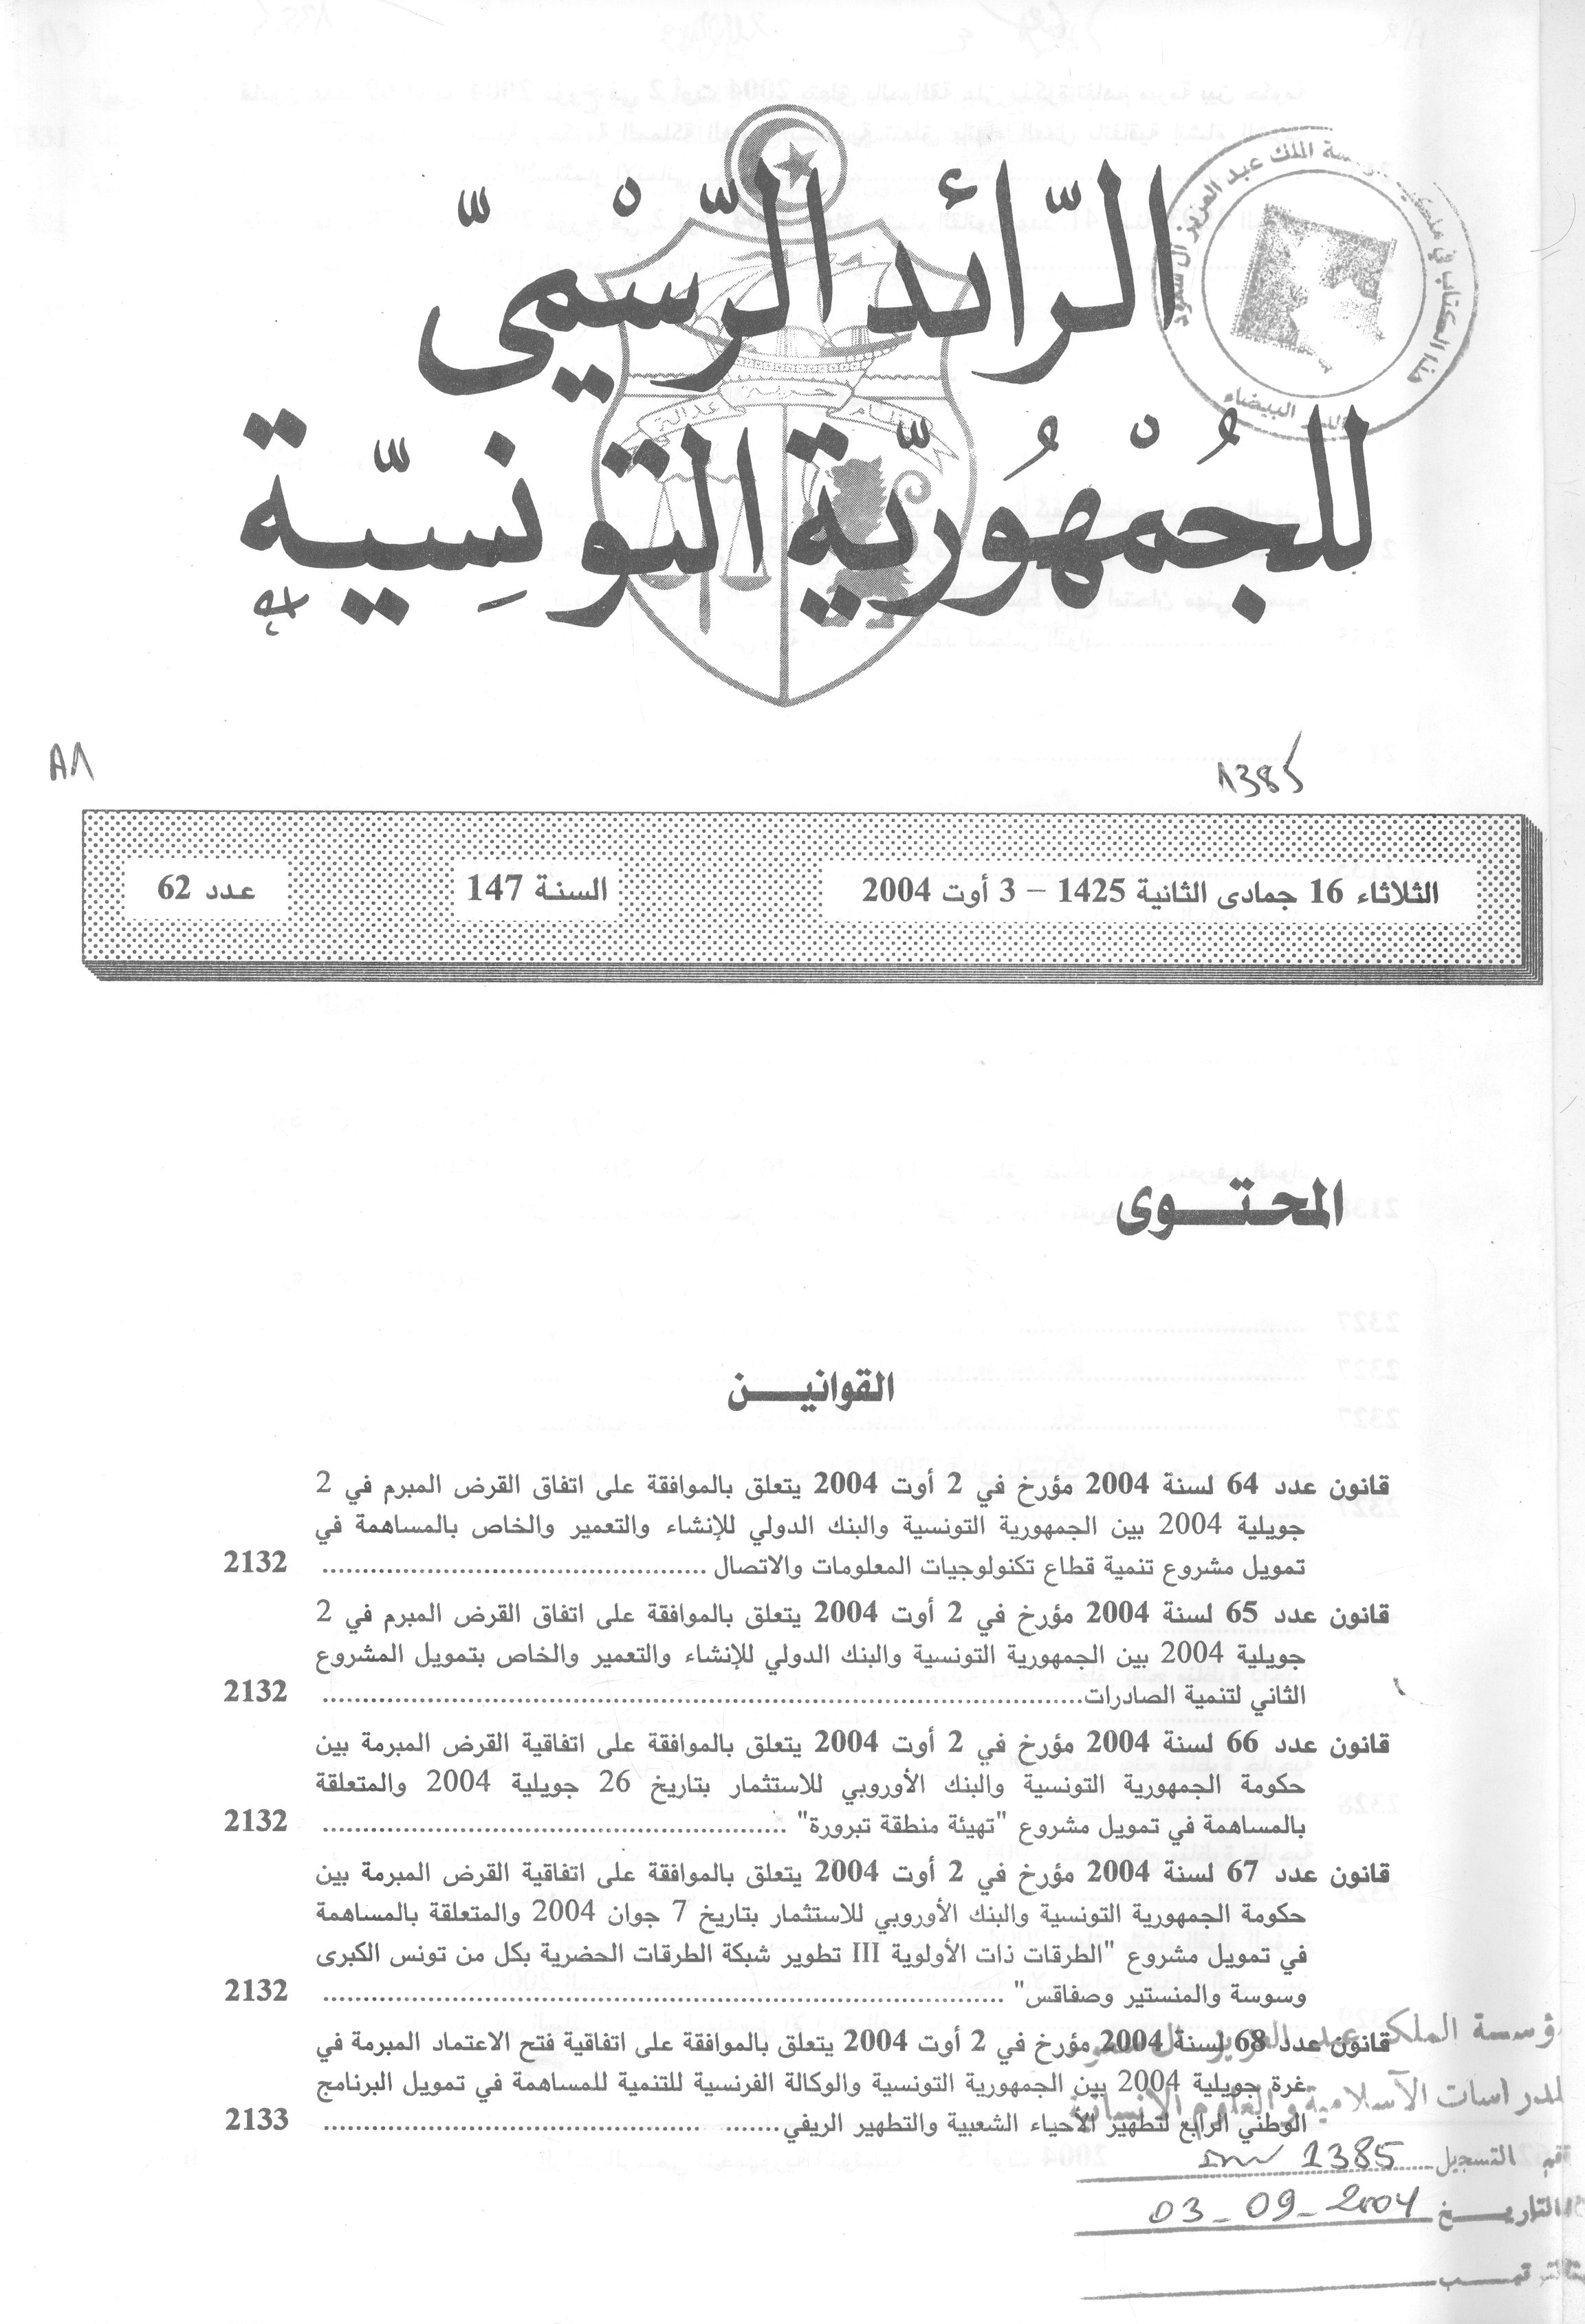 الرّائد الرّسْميّ
للجُمْهُوريّة التونِسيّة
نظام حرية عدالة
A1
1385
الثلاثاء 16 جمادى الثانية 1425 – 3 أوت 2004
السنة 147
عدد 62
المحتوى
القوانين
قانون عدد 64 لسنة 2004 مؤرخ في 2 أوت 2004 يتعلق بالموافقة على اتفاق القرض المبرم في 2
جويلية 2004 بين الجمهورية التونسية والبنك الدولي للإنشاء والتعمير والخاص بالمساهمة في
تمويل مشروع تنمية قطاع تكنولوجيات المعلومات والاتصال ........ 2132
قانون عدد 65 لسنة 2004 مؤرخ في 2 أوت 2004 يتعلق بالموافقة على اتفاق القرض المبرم في 2
جويلية 2004 بين الجمهورية التونسية والبنك الدولي للإنشاء والتعمير والخاص بتمويل المشروع
الثاني لتنمية الصادرات........ 2132
قانون عدد 66 لسنة 2004 مؤرخ في 2 أوت 2004 يتعلق بالموافقة على اتفاقية القرض المبرمة بين
حكومة الجمهورية التونسية والبنك الأوروبي للاستثمار بتاريخ 26 جويلية 2004 والمتعلقة
بالمساهمة في تمويل مشروع "تهيئة منطقة تبرورة" ........ 2132
قانون عدد 67 لسنة 2004 مؤرخ في 2 أوت 2004 يتعلق بالموافقة على اتفاقية القرض المبرمة بين
حكومة الجمهورية التونسية والبنك الأوروبي للاستثمار بتاريخ 7 جوان 2004 والمتعلقة بالمساهمة
في تمويل مشروع "الطرقات ذات الأولوية III تطوير شبكة الطرقات الحضرية بكل من تونس الكبرى
وسوسة والمنستير وصفاقس" ........ 2132
قانون عدد 68 لسنة 2004 مؤرخ في 2 أوت 2004 يتعلق بالموافقة على اتفاقية فتح الاعتماد المبرمة في
غرة جويلية 2004 بين الجمهورية التونسية والوكالة الفرنسية للتنمية للمساهمة في تمويل البرنامج
الوطني الرابع لتطهير الأحياء الشعبية والتطهير الريفي........ 2133
ؤسسة الملك عبد العزيز آل سعود
لدراسات الآسلامية والعلوم الإنسانية
قم التسجيل 1385
التاريخ 03-09-2004